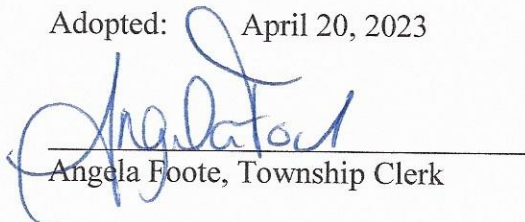 Adopted: April 20, 2023
Angela Foote
Angela Foote, Township Clerk